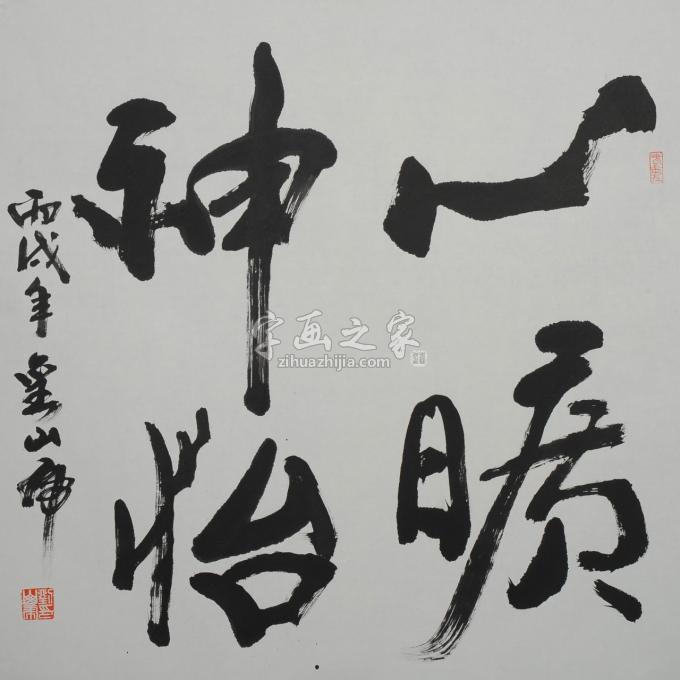 心曠
神怡
丙戌年金山席
字画之家
zihuazhijia.com